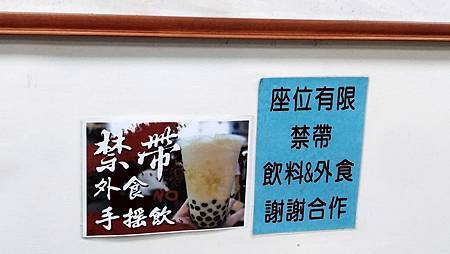 禁帶
外食
NO
手搖飲
座位有限
禁帶
飲料&外食
謝謝合作